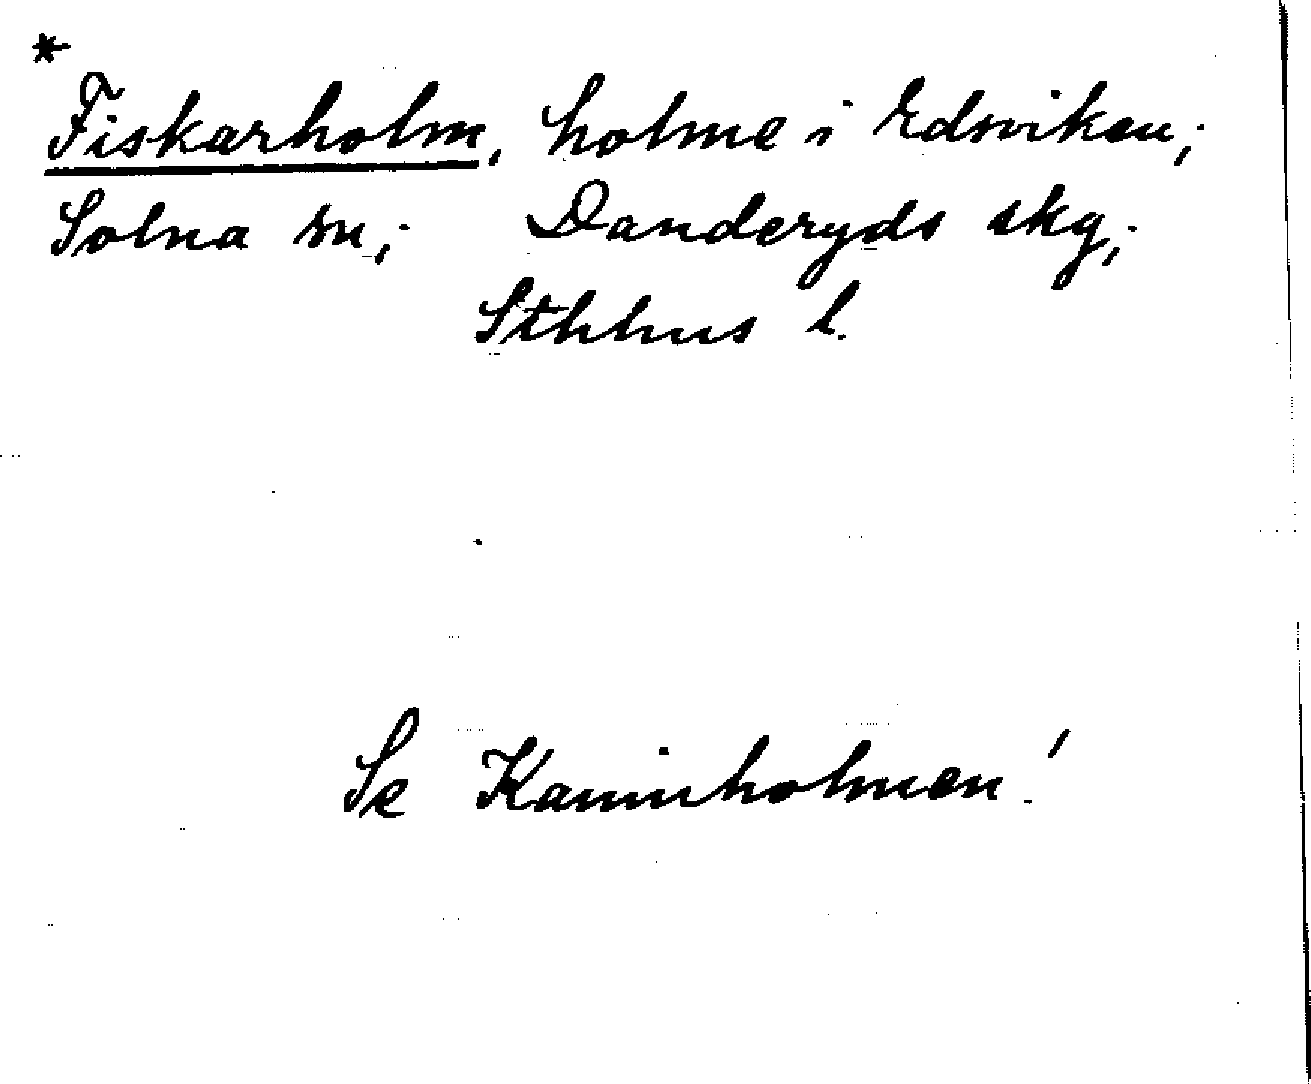 *
Fiskarholm, holme i Edsviken;
Solna sn; Danderyds skg;
Sthlms l.
Se Kaninholmen!